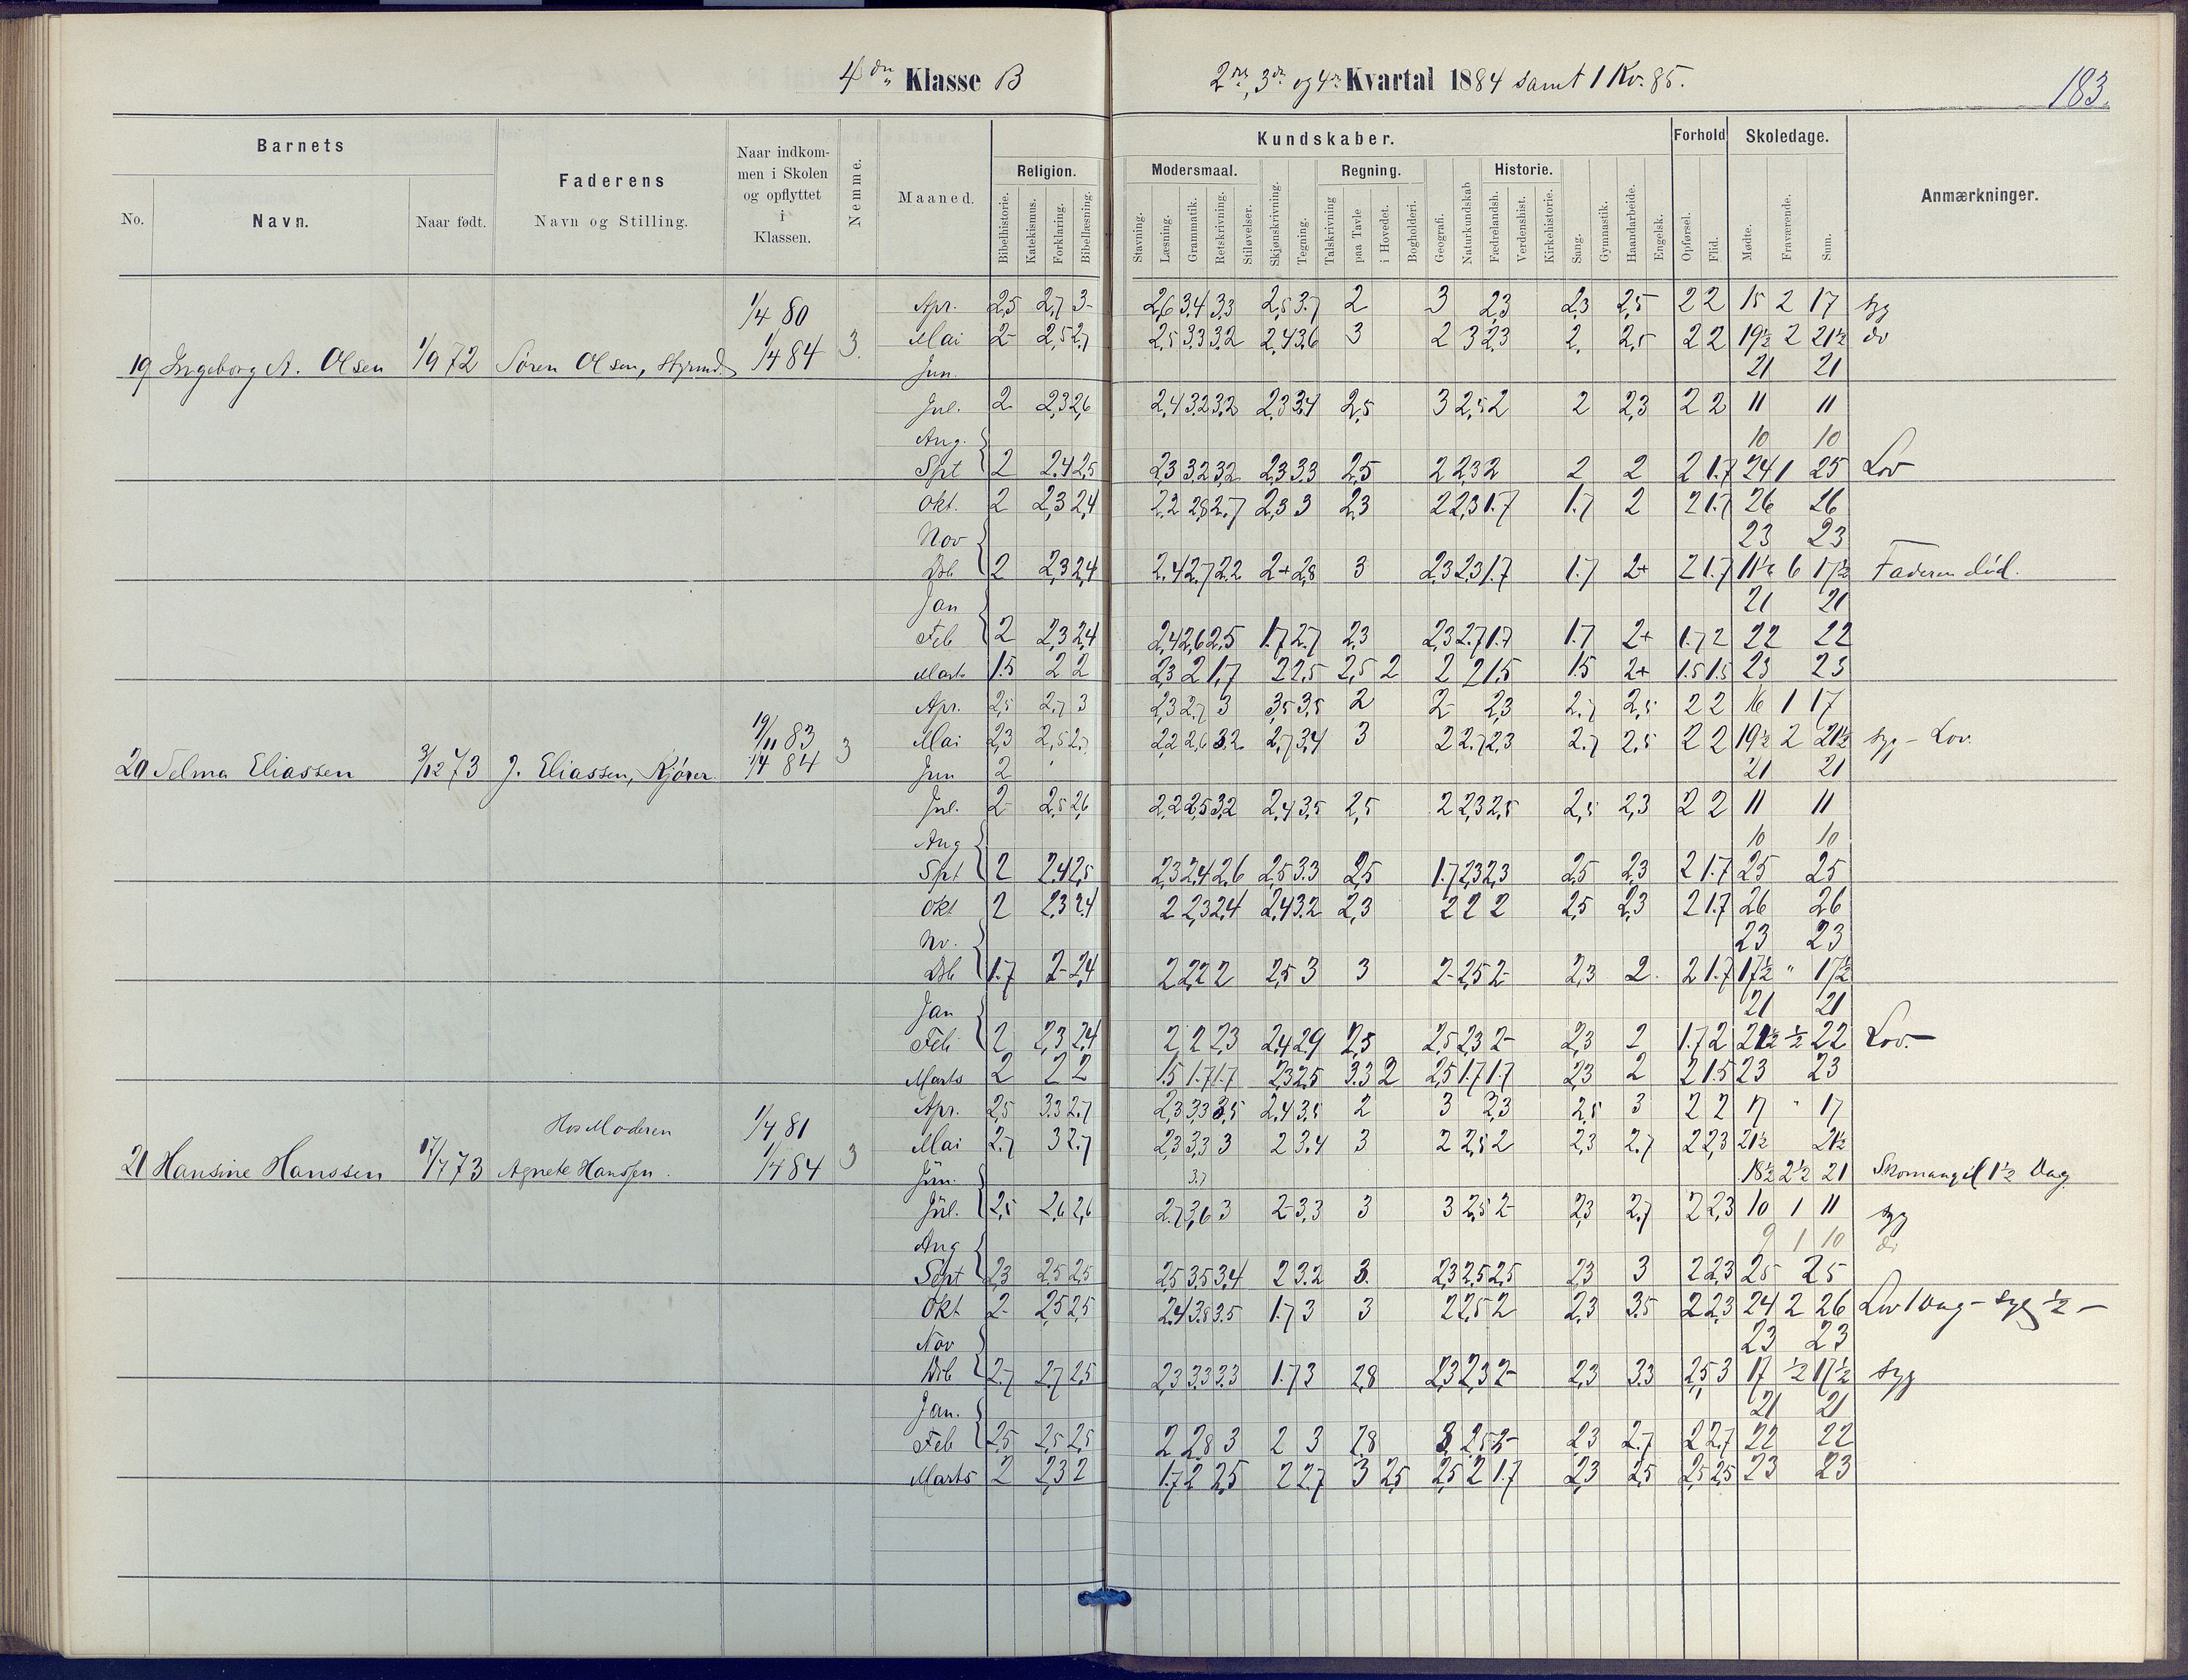 4de Klasse B
2det, 3de og 4de Kvartal 1884 samt 1 Kv. 85.
183.
Barnets
Faderens
Naar indkommen i Skolen og opflyttet i Klassen.
Nemme.
Maaned.
Kundskaber.
Forhold
Skoledage.
Anmærkninger.
No.
Navn.
Naar født.
Navn og Stilling.
Religion.
Modersmaal.
Regning.
Historie.
Bibelhistorie.
Katekismus.
Forklaring.
Bibellæsning.
Stavning.
Læsning.
Grammatik.
Retskrivning.
Stiløvelser.
Skjønskrivning.
Tegning.
Talskrivning
paa Tavle
i Hovedet.
Bogholderi.
Geografi.
Naturkundskab
Fædrelandsh.
Verdenshist.
Kirkehistorie.
Sang.
Gymnastik.
Haandarbeide.
Engelsk.
Opførsel.
Flid.
Mødte.
Fraværende.
Sum.
19 Ingeborg A. Olsen 1/9 72 Søren Olsen, Styrmd. 1/4 80 1/4 84 3.
Apr. 2,5 2,7 3- 2,6 3,4 3,3 2,5 3,7 2 3 2,3 2,3 2,5 2 2 15 2 17 syg
Mai 2- 2,5 2,7 2,5 3,3 3,2 2,4 3,6 3 2 3 2,3 2, 2,5 2 2 19½ 2 21½ do
Jun. 21 21
Jul. 2 2,3 2,6 2,4 3,2 3,2 2,3 3,4 2,5 3 2,5 2 2 2,3 2 2 11 11
Aug. 10 10
Spt 2 2,4 2,5 2,3 3,2 3,2 2,3 3,3 2,5 2 2,3 2 2 2 2 1.7 24 1 25 Lov
Okt. 2 2,3 2,4 2,2 2,8 2,7 2,3 3 2,3 2 2,3 1.7 1.7 2 2 1.7 26 26
Nov 23 23
Dsb 2 2,3 2,4 2,4 2,7 2,2 2+ 2,8 3 2,3 2,3 1.7 1.7 2+ 2 1.7 11½ 6 17½ Faderen død.
Jan 21 21
Feb 2 2,3 2,4 2,4 2,6 2,5 1.7 2,7 2,3 2,3 2,7 1.7 1.7 2+ 1.7 2 22 22
Marts 1.5 2 2 2,3 2 1,7 2 2,5 2,5 2 2 2 1.5 1.5 2+ 1.5 1.5 23 23
20 Selma Eliassen 3/12 73 J. Eliassen, Kjører. 19/11 83 1/4 84 3
Apr. 2,5 2,7 3 2,3 2,7 3 3,5 3,5 2 2- 2,3 2,7 2,5 2 2 16 1 17
Mai 2,3 2,5 2,7 2,2 2,6 3,2 2,7 3,4 3 2 2,7 2,3 2,7 2,5 2 2 19½ 2 21½ syg - Lov.
Jun 2 21 21
Jul. 2- 2,5 2,6 2,2 2,5 3,2 2,4 3,5 2,5 2 2,3 2,5 2,5 2,3 2 2 11 11
Aug 10 10
Spt 2 2,4 2,5 2,3 2,4 2,6 2,5 3,3 2,5 1.7 2,3 2,3 2,5 2,3 2 1.7 25 25
Okt 2 2,3 2,4 2 2,3 2,4 2,4 3,2 2,3 2 2 2 2,5 2,3 2 1.7 26 26
Nv. 23 23
Dsb 1.7 2- 2,4 2 2,2 2 2,5 3 3 2- 2,5 2- 2,3 2. 2 1.7 17½ " 17½
Jan 21 21
Feb 2 2,3 2,4 2 2 2,3 2,4 2,9 2,5 2,5 2,3 2- 2,3 2 1.7 2 21½ ½ 22 Lov. -
Marts 2 2 2 1.5 1.7 1.7 2,3 2,5 3.3 2 2,5 1.7 1.7 2,3 2 2 1.5 23 23
21 Hansine Hanssen 17/7 73 Hos Moderen Agnete Hanssen. 1/4 81 1/4 84 3
Apr. 2,5 3.3 2.7 2,3 3,3 3,5 2,4 3,5 2 3 2,3 2,5 3 2 2 17 " 17
Mai 2,7 3 2,7 2,3 3,3 3 2 3,4 3 2 2,5 2 2,3 2,7 2 2,3 21½ 21½
Jun. 3.7 18½ 2½ 21 Skomangel 1½ Dag
Jul. 2,5 2,6 2,6 2,7 3,6 3 2- 3,3 3 3 2,5 2- 2,3 2,7 2 2,3 10 1 11 syg
Aug 9 1 10 do
Sept 2,3 2,5 2,5 2,5 3,5 3,4 2 3.2 3. 2,3 2,5 2,5 2,3 3 2 2,3 25 25
Okt 2- 2,5 2,5 2,4 3,8 3.5 1.7 3 3 2 2,5 2 2,3 3.5 2 2,3 24 2 26 Lov 1 Dag - syg ½ -
Nov 23 23
Dsb 2,7 2,7 2,5 2,3 3.3 3.3 1.7 3 2,8 2,3 2,3 2- 2,3 3.3 2,5 3 17 ½ 17½ syg
Jan. 21 21
Feb 2,5 2,5 2,5 2 2,8 3 2 3 2,8 3 2,5 2- 2,3 2,7 2 2,7 22 22
Marts 2 2,3 2 1.7 2 2,5 2 2.7 3 2,5 2,5 2 1.7 2,3 2,5 2,5 2,5 23 23